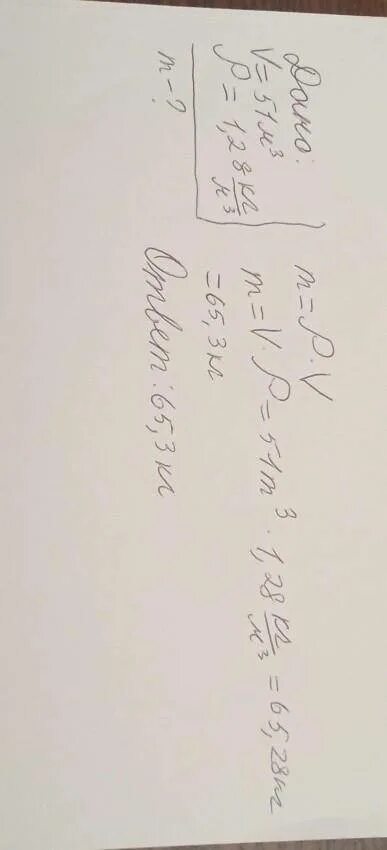 Дано:
V = 51 м³
ρ = 1,28 кг/м³
m - ?
m = ρ · V
m = V · ρ = 51 m³ · 1,28 кг/м³ = 65,28 кг
= 65,3 кг
Ответ: 65,3 кг